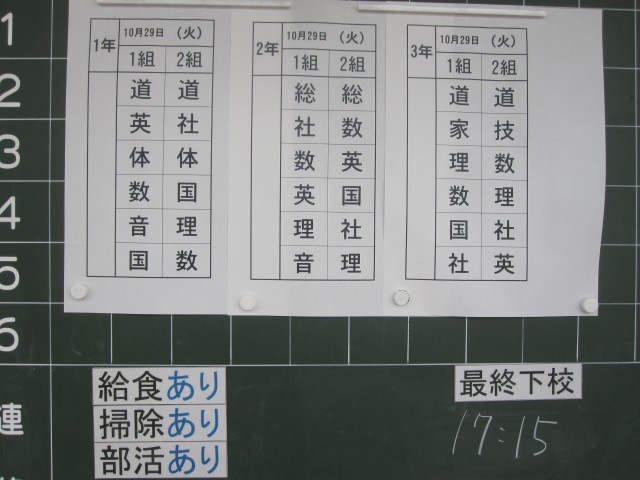 1年 10月29日 （火）
1組 2組
道 道
英 社
体 体
数 国
音 理
国 数
2年 10月29日 （火）
1組 2組
総 総
社 数
数 英
英 国
理 社
音 理
3年 10月29日 （火）
1組 2組
道 道
家 技
理 数
数 理
国 社
社 英
1
2
3
4
5
6
連
給食あり
掃除あり
部活あり
最終下校
17:15